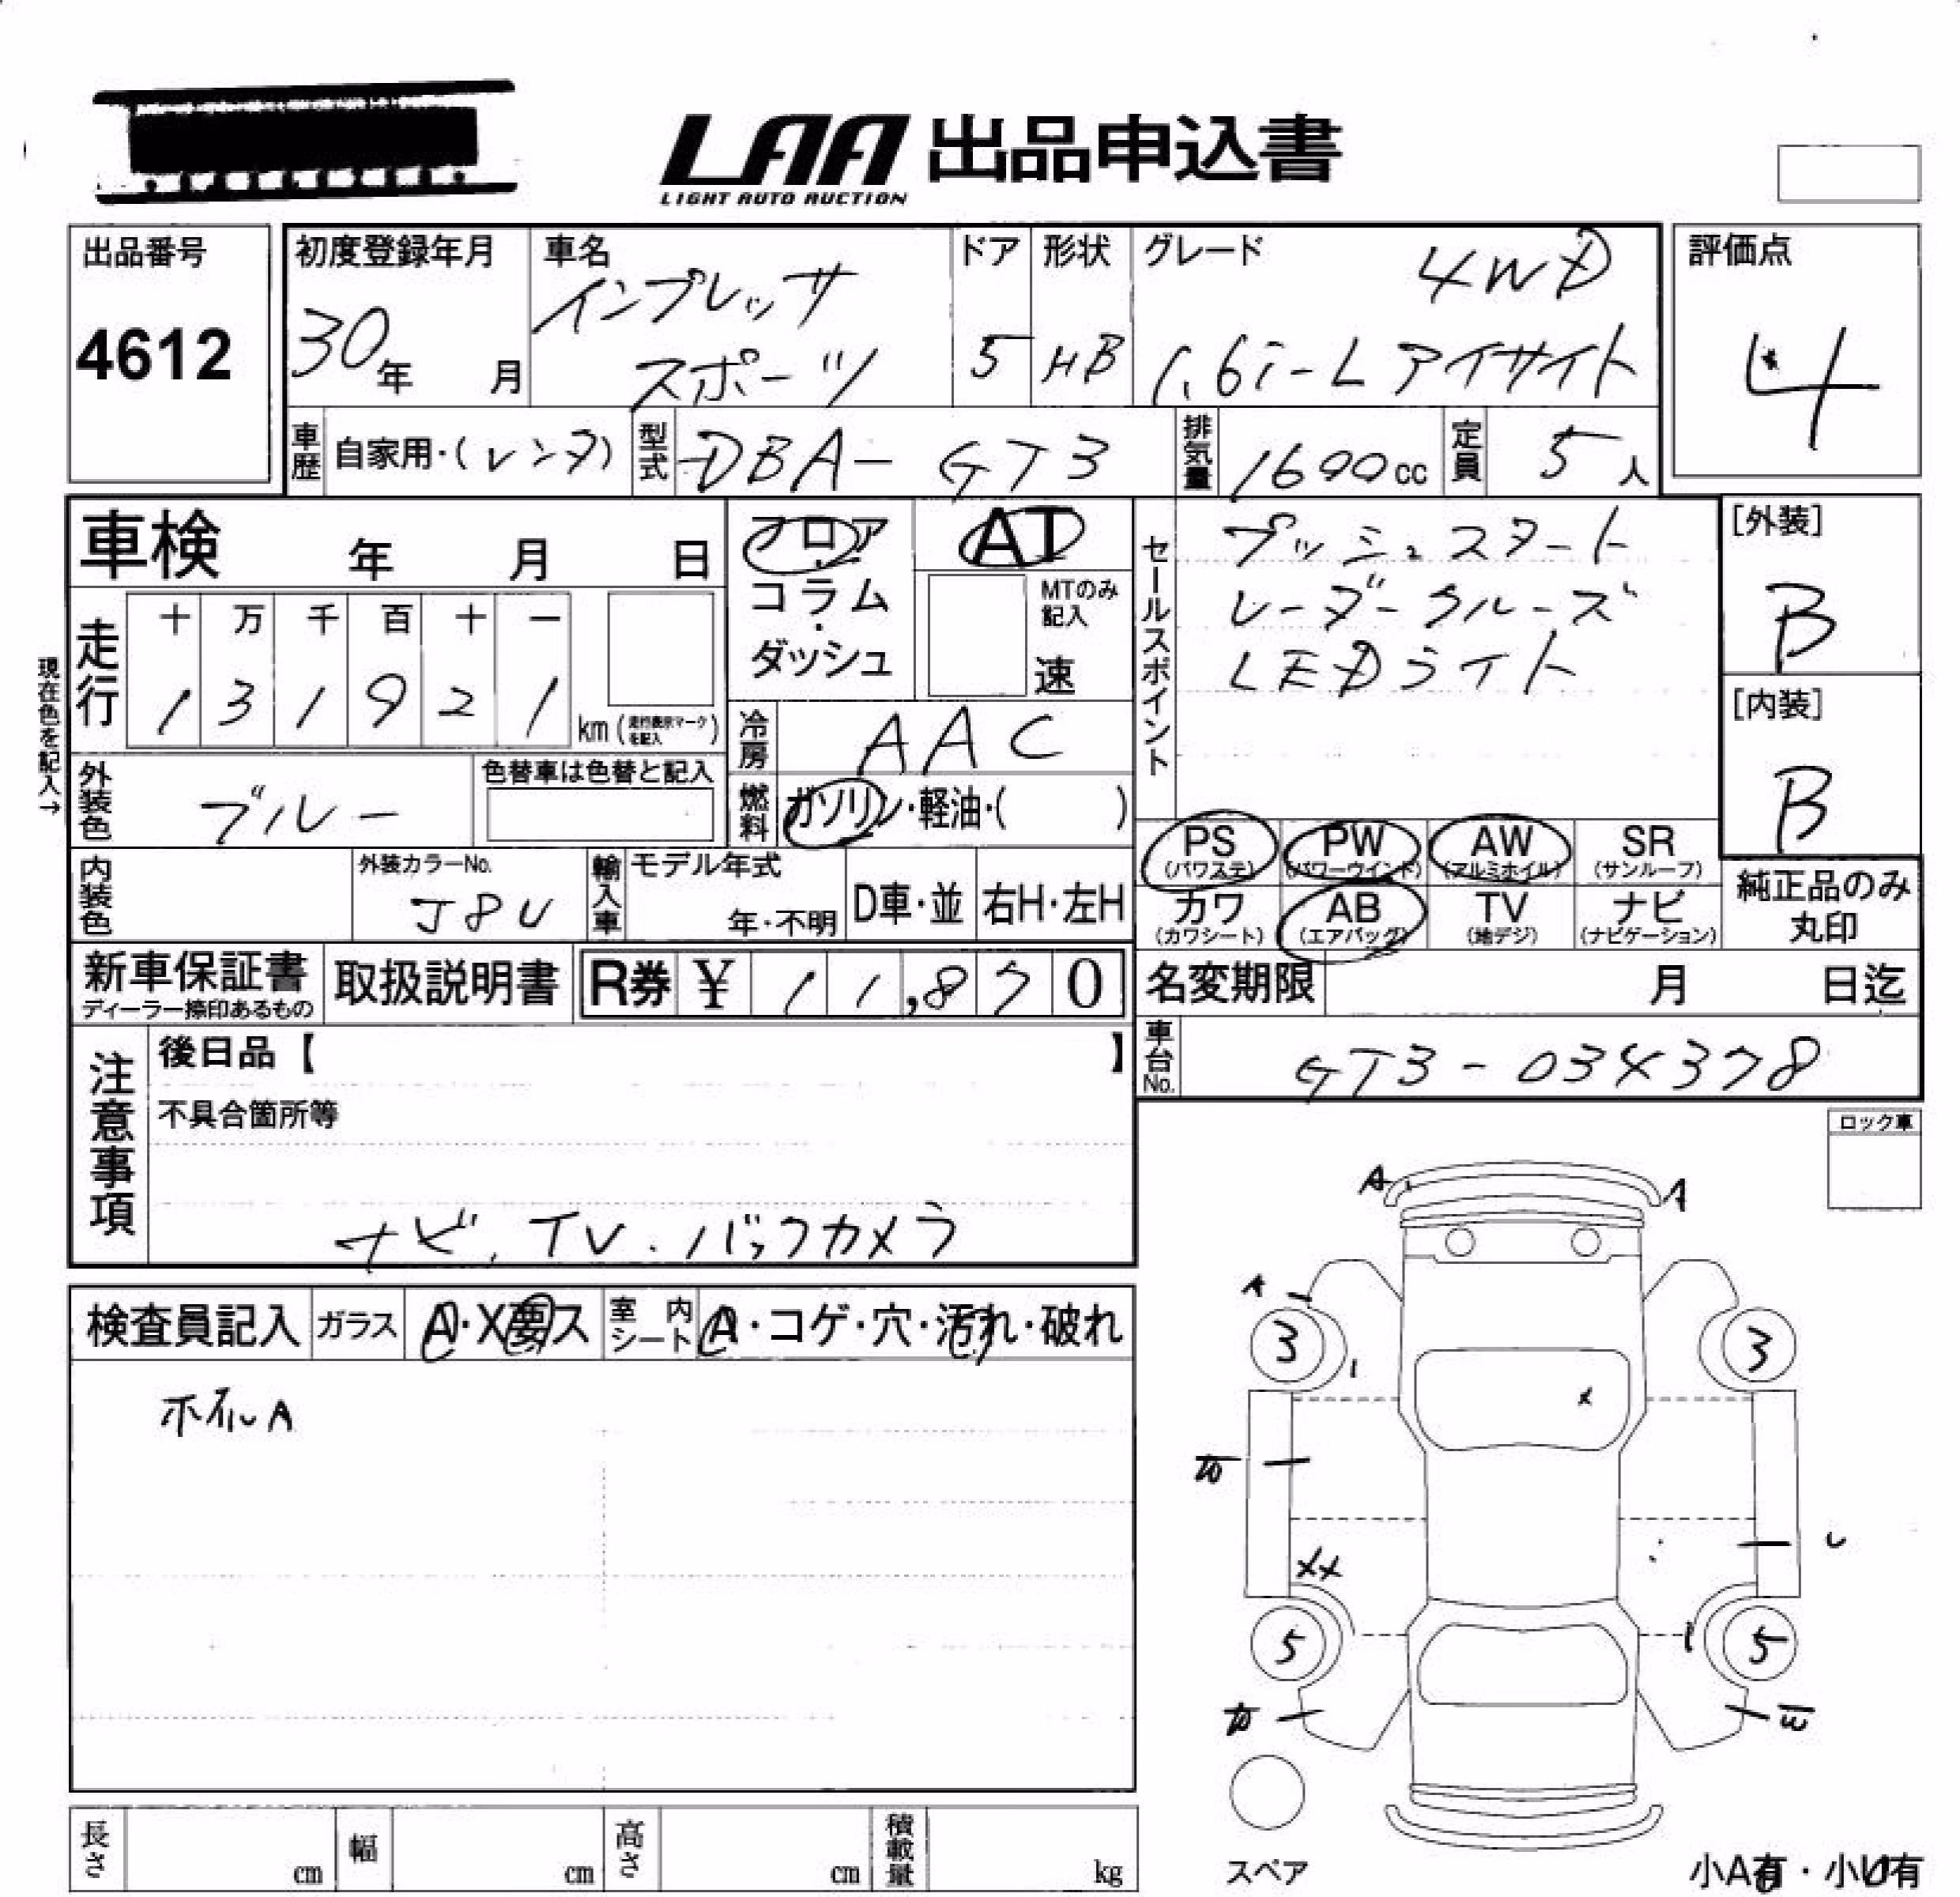 LAA 出品申込書
LIGHT AUTO AUCTION
出品番号
4612
初度登録年月
30年 月
車名
インプレッサ
スポーツ
ドア
5
形状
HB
グレード
4WD
1.6i-L アイサイト
評価点
4
車歴 自家用・(レンタ)
型式 DBA- GT3
排気量 1600cc
定員 5人
車検 年 月 日
フロア・コラム・ダッシュ
AT
MTのみ記入
速
セールスポイント
プッシュスタート
レーダークルーズ
LEDライト
[外装]
B
[内装]
B
現在色を記入→
走行
十 万 千 百 十 一
1 3 1 9 2 1 km (走行表示マークを記入)
冷房 AAC
外装色 ブルー
色替車は色替と記入
燃料 ガソリン・軽油・( )
PS (パワステ) PW (パワーウインド) AW (アルミホイル) SR (サンルーフ)
カワ (カワシート) AB (エアバッグ) TV (地デジ) ナビ (ナビゲーション)
純正品のみ丸印
内装色
外装カラーNo.
J8U
輸入車 モデル年式 年・不明 D車・並 右H・左H
新車保証書
ディーラー捺印あるもの
取扱説明書
R券 ¥ 11,870
名変期限 月 日迄
車台No. GT3-034378
注意事項
後日品【 】
不具合箇所等
ナビ、TV・バックカメラ
ロック車
検査員記入 ガラス A・X要ス 室内シート A・コゲ・穴・汚れ・破れ
ホイルA
A
A
A
3
3
X
XX
し
5
5
スペア
長さ cm 幅 cm 高さ cm 積載量 kg
小A有・小U有